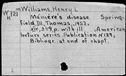 Williams, Henry L
Ménière's disease. Spring-
field, Ill., Thomas, 1952.
xiv, 349 p. with ill. American
lecture series. Publication № 189.
Bibliogr. at end of chapt.